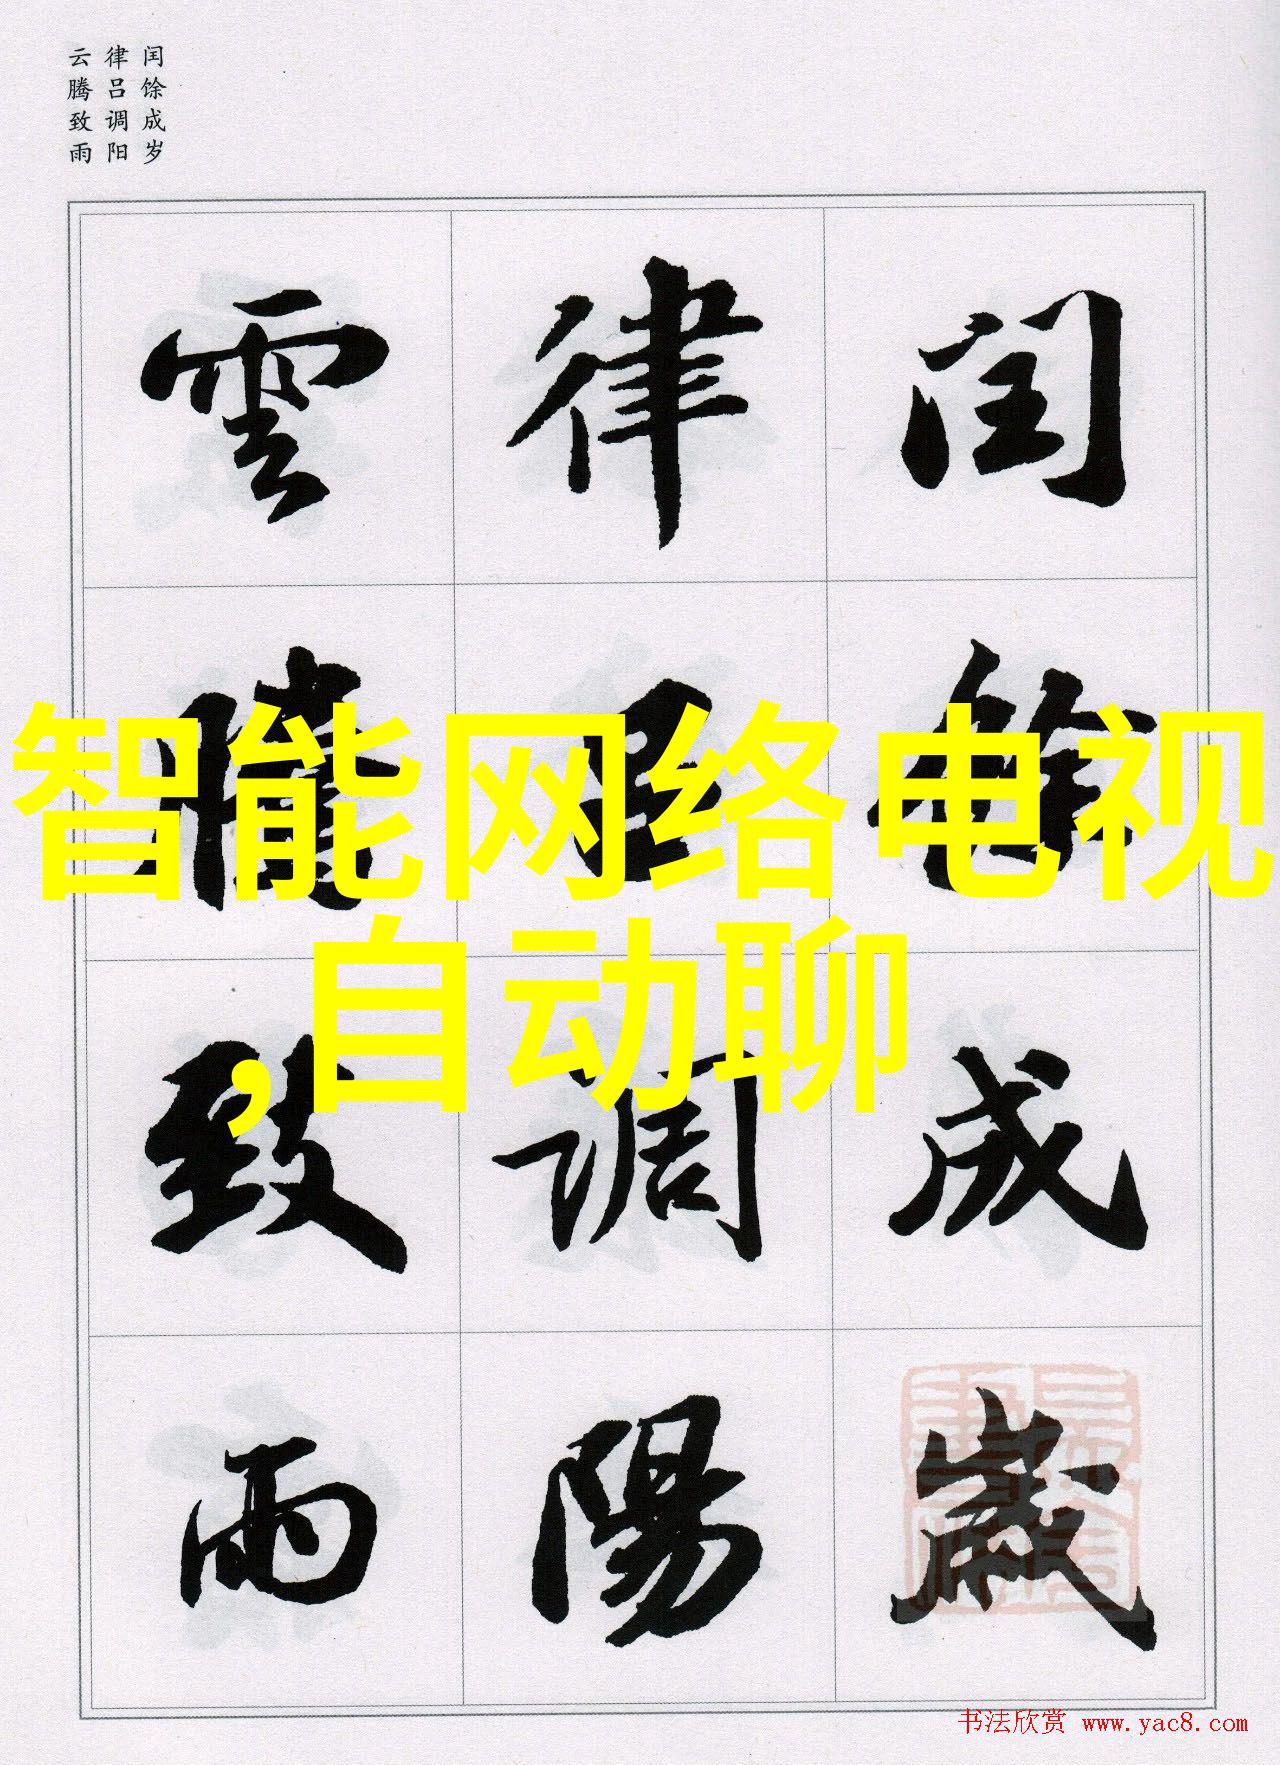 闰馀成岁
律吕调阳
云腾致雨
閏餘成歲
律吕調陽
雲騰致雨
智能网络电视
,自动聊
书法欣赏 www.yac8.com